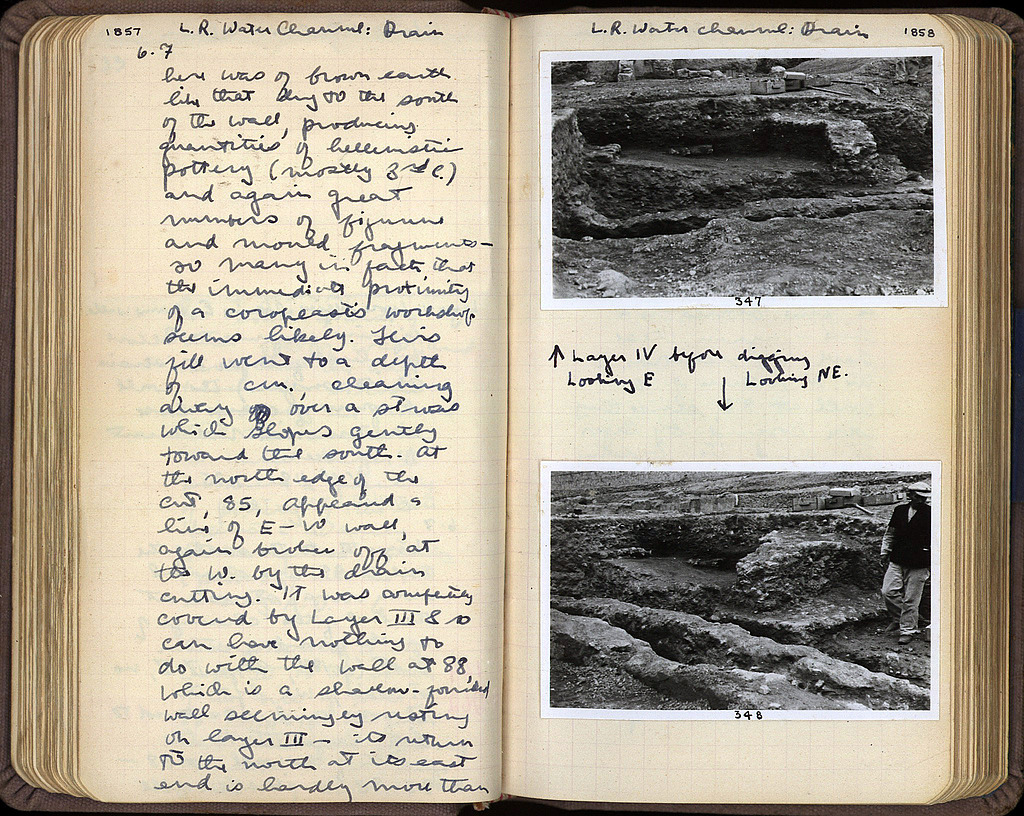 1857
L.R. Water Channel: Drain
6.7
here was of brown earth
like that dug to the south
of the wall, producing
quantities of hellenistic
pottery (mostly 3rd c.)
and again great
numbers of figurine
and mould fragments—
so many in fact that
the immediate proximity
of a coroplast's workshop
seems likely. This
fill went to a depth
of cm., cleaning
away over a stereo
which slopes gently
toward the south. At
the north edge of the
cut, 85, appeared a
line of E-W wall,
again broken off at
the W. by the drain
cutting. It was completely
covered by Layer III & so
can have nothing to
do with the wall at 88,
which is a shallow-founded
wall seemingly resting
on layer III — its return
to the north at its east
end is hardly more than
L.R. Water Channel: Drain
1858
347
↑ Layer IV before digging
Looking E
↓ Looking NE.
348